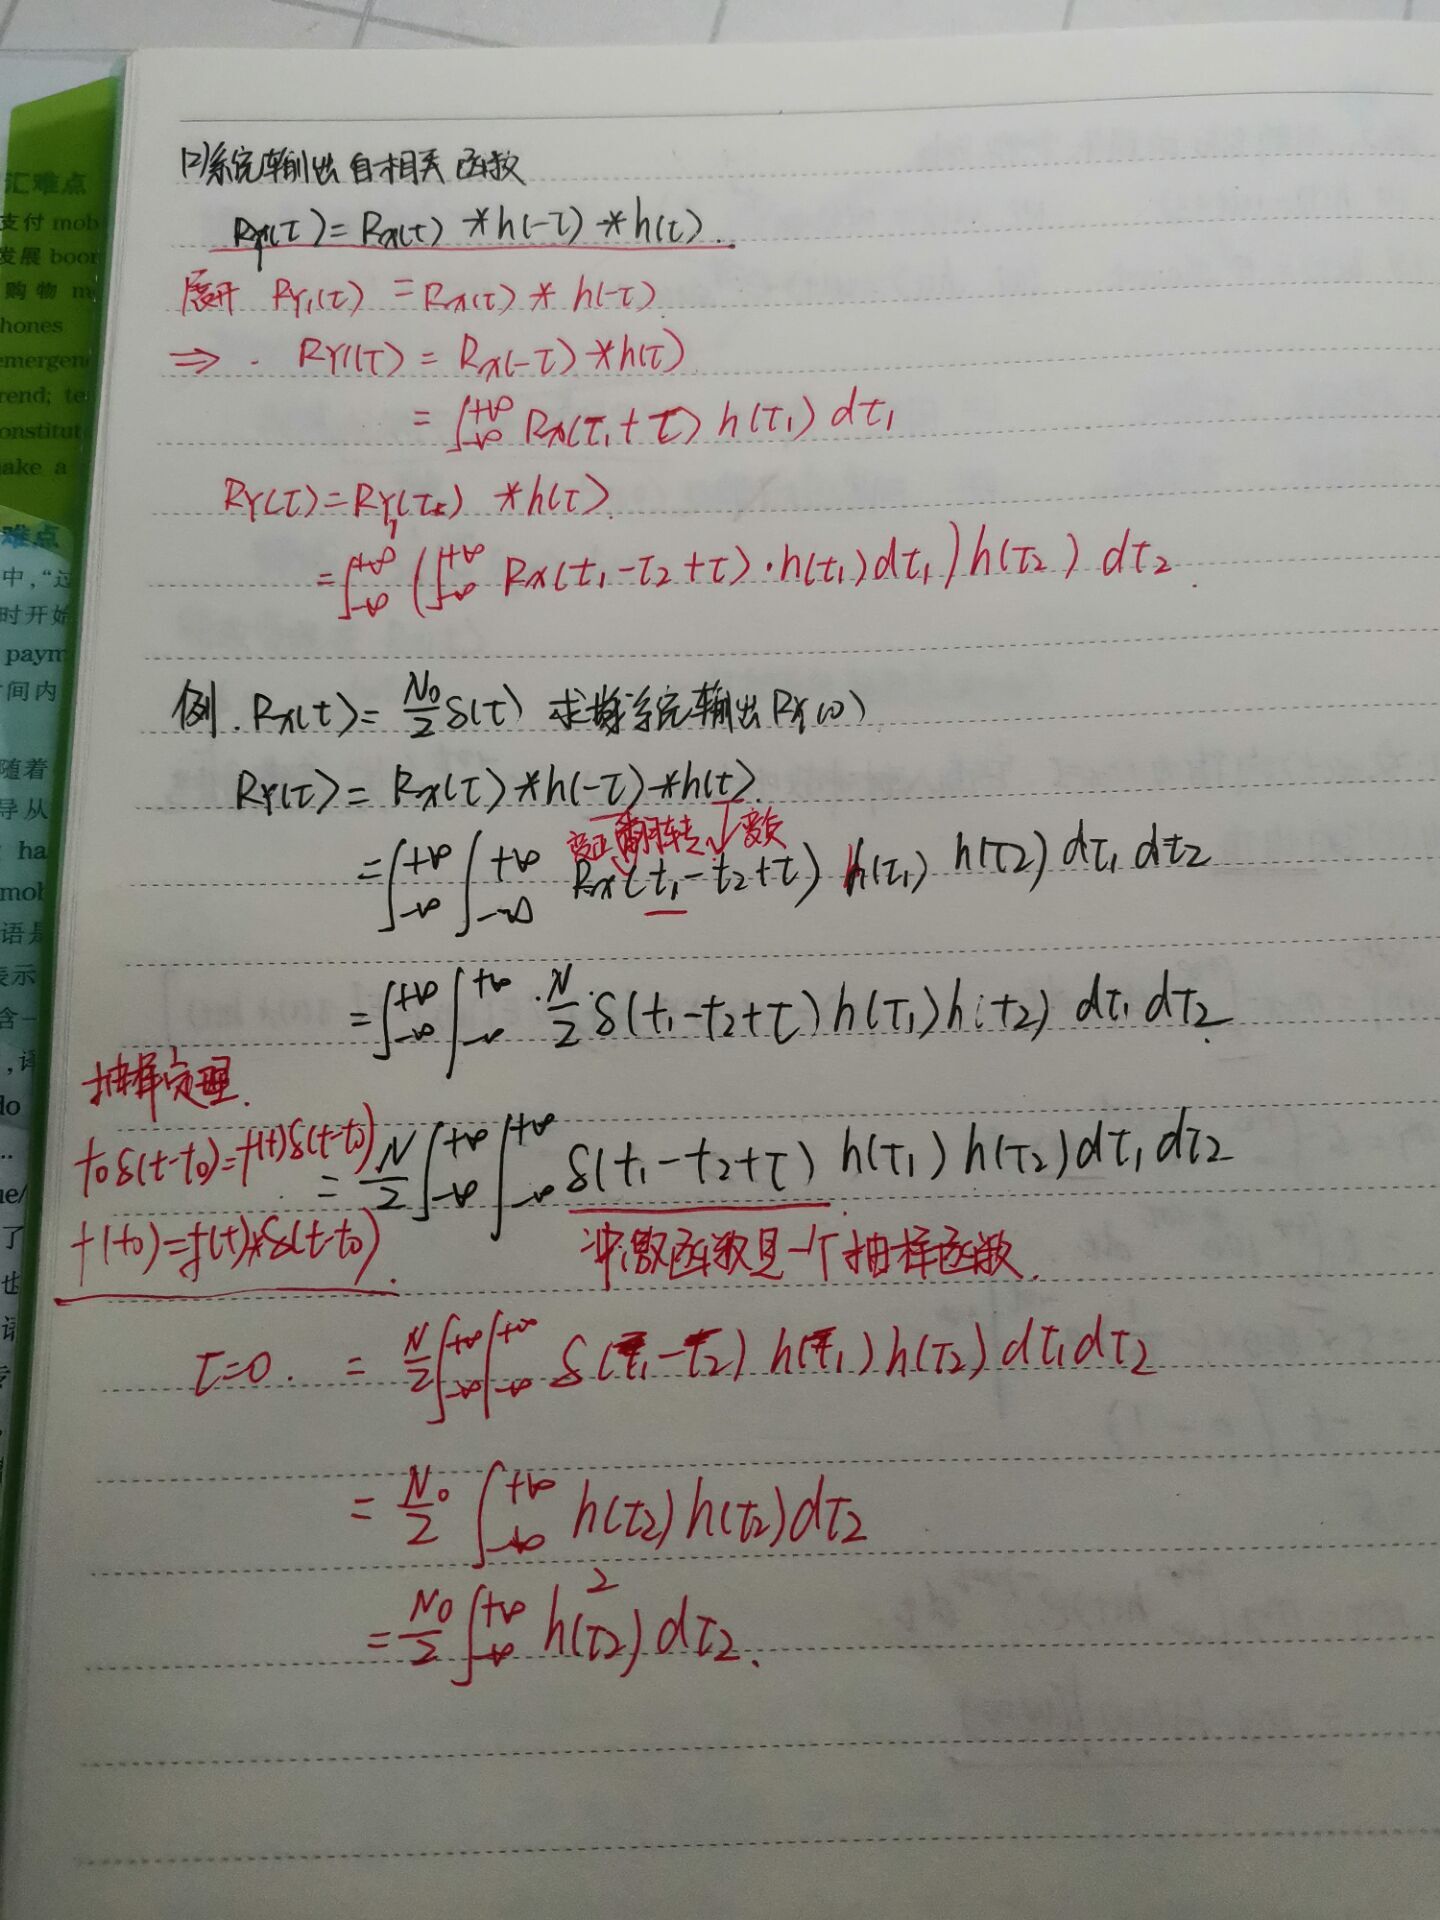 汇难点
支付 mob
发展 boor
购物 m
hones
emergen
rend; te
onstitut
ake a
难点
时开始
paym
间内
随着
导从
ha
mob
语是
表示
含一
do
(2)系统输出自相关函数
RY(τ)=Rx(τ) *h(-τ) *h(τ).
展开 RY1(τ) = Rx(τ) * h(-τ)
⇒ . RY1(τ) = Rx(-τ) *h(τ)
= ∫-∞+∞ Rx(τ1+τ) h(τ1) dτ1
RY(τ)=RY1(τ) *h(τ).
=∫-∞+∞ (∫-∞+∞ Rx(τ1-τ2+τ)·h(τ1)dτ1) h(τ2) dτ2.
例. Rx(τ)= N0/2 δ(τ) 求系统输出RY(0)
RY(τ) = Rx(τ) *h(-τ) *h(τ).
变正 翻转 变负
=∫-∞+∞ ∫-∞+∞ Rx(τ1-τ2+τ) h(τ1) h(τ2) dτ1 dτ2
=∫-∞+∞ ∫-∞+∞ N/2 δ(τ1-τ2+τ) h(τ1) h(τ2) dτ1 dτ2.
抽样定理.
f0δ(t-t0)=f(t)δ(t-t0)
= N/2 ∫-∞+∞ ∫-∞+∞ δ(τ1-τ2+τ) h(τ1) h(τ2) dτ1 dτ2
f(t0)=f(t)*δ(t-t0).
冲激函数是一个抽样函数.
τ=0. = N/2 ∫-∞+∞ ∫-∞+∞ δ(τ1-τ2) h(τ1) h(τ2) dτ1 dτ2
= N0/2 ∫-∞+∞ h(τ2) h(τ2) dτ2
= N0/2 ∫-∞+∞ h²(τ2) dτ2.